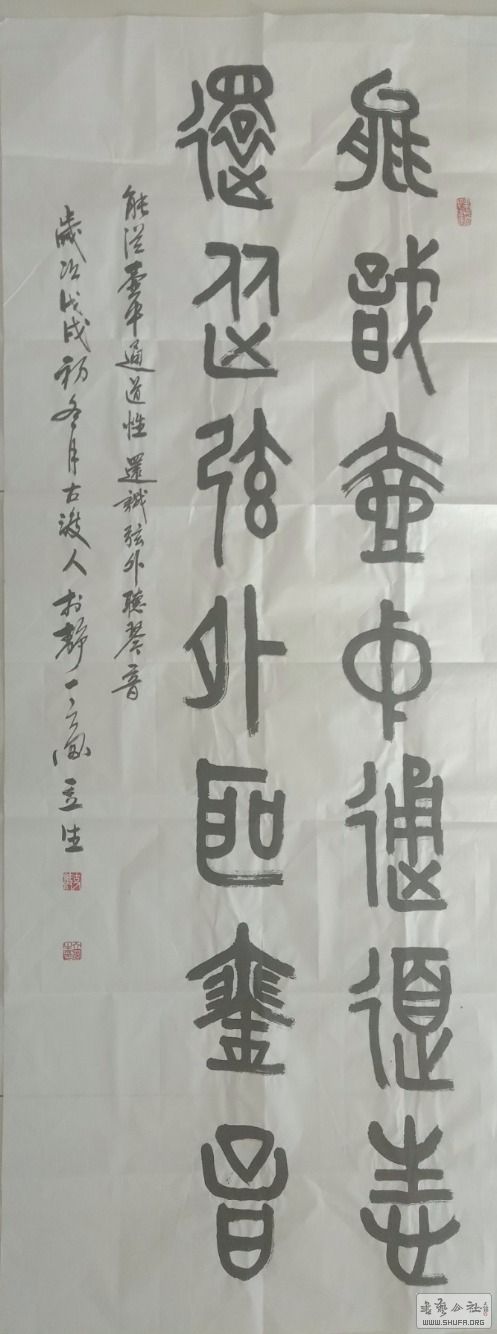 能戠壺中通道性
還從弦外聽琴音
能從壺中通道性還識弦外聽琴音
歲次戊戌初冬月古渡人於靜一
書藝公社
WWW.SHUFA.ORG